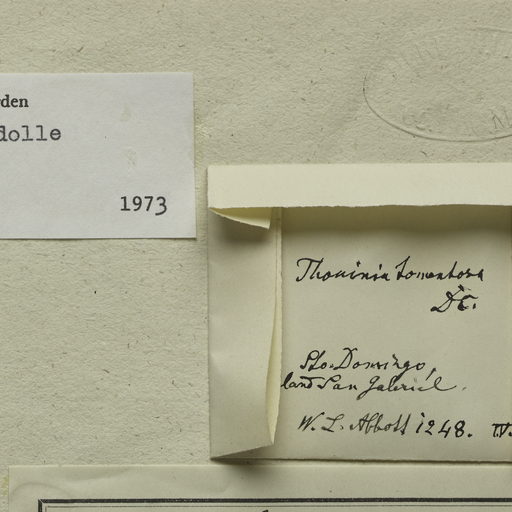 rden
dolle
1973
Thouinia tomentosa
DC.
Sto. Domingo,
land San Gabriel.
W. L. Abbott 1248. IV.